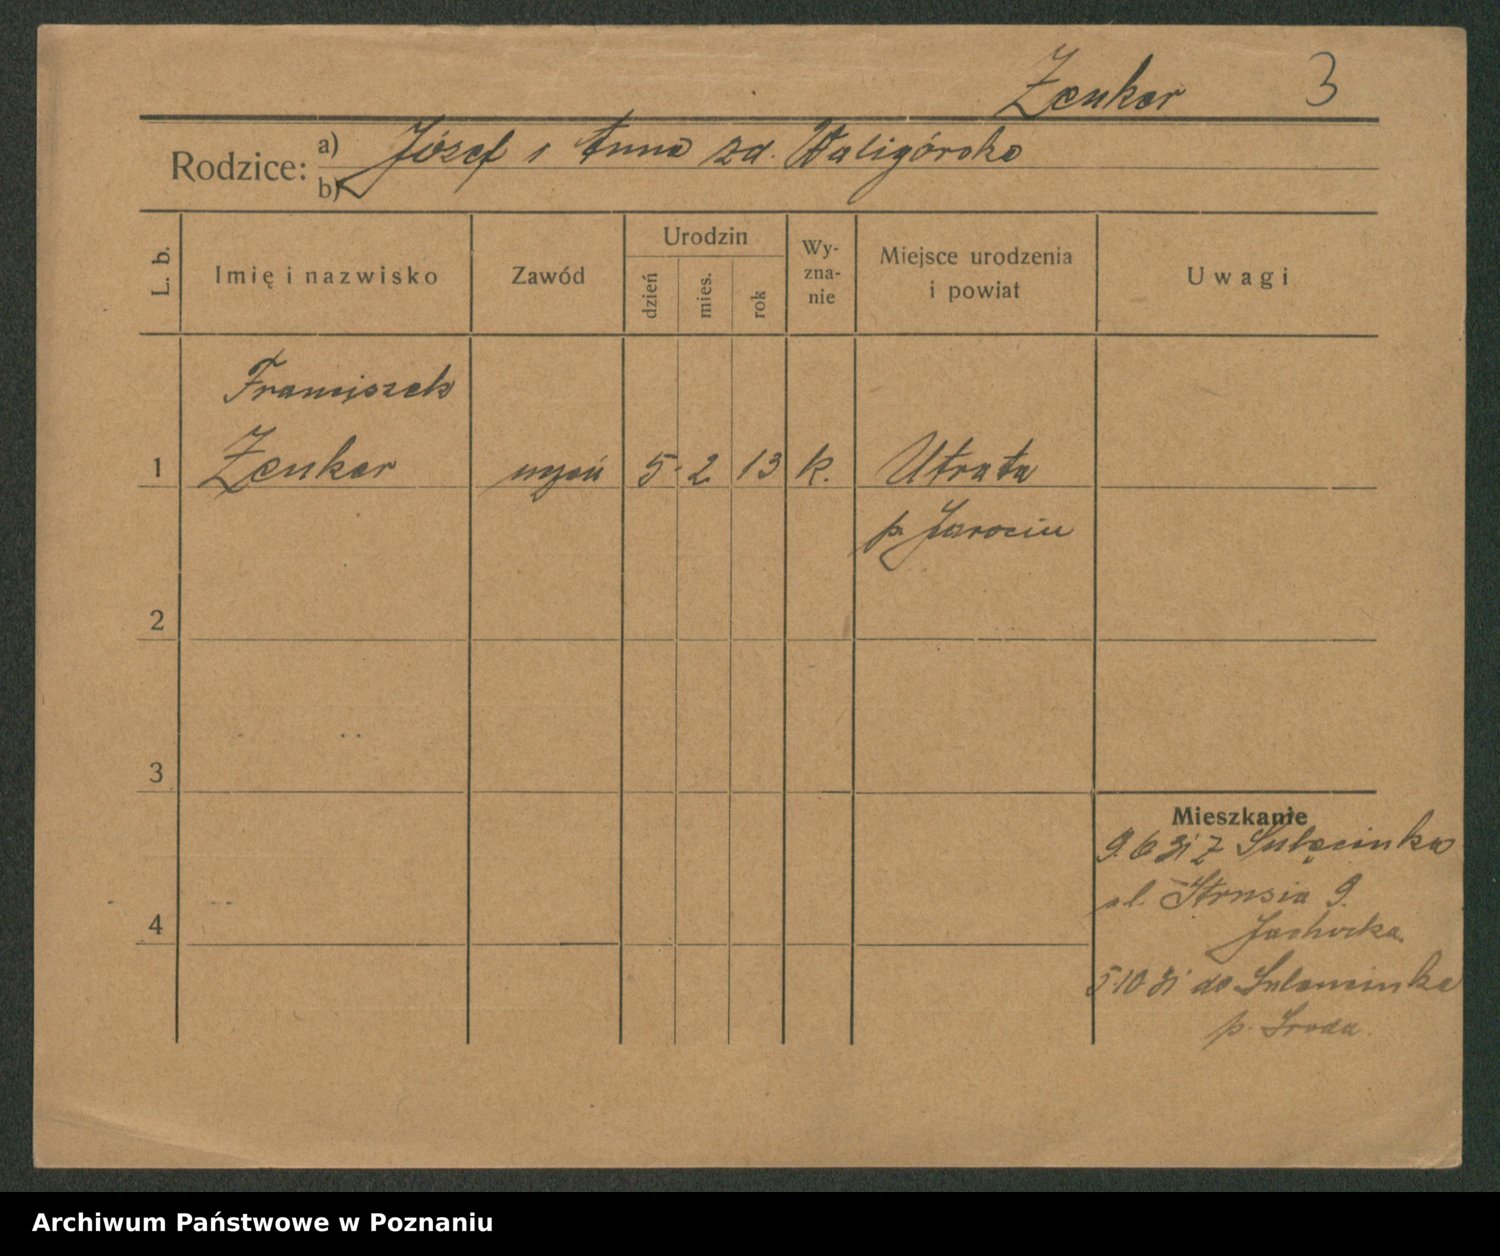 Zenker 3
Rodzice: a) Józef i Anna zd. Waligórska
b)
L. b.
Imię i nazwisko
Zawód
Urodzin
dzień
mies.
rok
Wy-
zna-
nie
Miejsce urodzenia
i powiat
Uwagi
Franciszek
1 Zenker uczeń 5. 2. 13 k. Utrata
p. Jarocin
2
3
Mieszkanie
9. 6 31 z Sulęcinka
ul. Strusia 9.
4
5.10 31 do Sulęcinka
p. Środa.
Archiwum Państwowe w Poznaniu